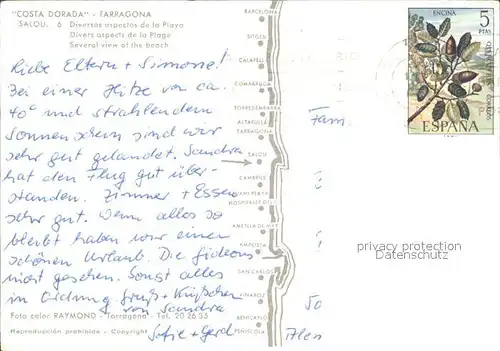 "COSTA DORADA" - TARRAGONA
SALOU. 6 Diversos aspectos de la Playa
Divers aspects de la Plage
Several view of the beach
Liebe Eltern + Simone!
Bei einer Hitze von ca.
40° und strahlendem
Sonnenschein sind wir
sehr gut gelandet. Sandra
hat den Flug gut über-
standen. Zimmer + Essen
sehr gut. Wenn alles so
bleibt haben wir einen
schönen Urlaub. Die
nicht gesehen. Sonst alles
in Ordnung Gruß + Küßchen
von Sandra
+ Gerd
Foto color RAYMOND - Tarragona - Tel. 20 26 35
Reproducción prohibida - Copyright
BARCELONA
SITGES
CALAFELL
COMARRUGA
TORREDEMBARRA
ALTAFULLA
TARRAGONA
SALOU
CAMBRILS
MIAMI PLAYA
AMETLLA DE MAR
AMPOSTA
SAN CARLOS
VINAROZ
BENICARLO
PEÑISCOLA
ENCINA
5
PTAS
ESPAÑA
Fam.
50
privacy protection
Datenschutz